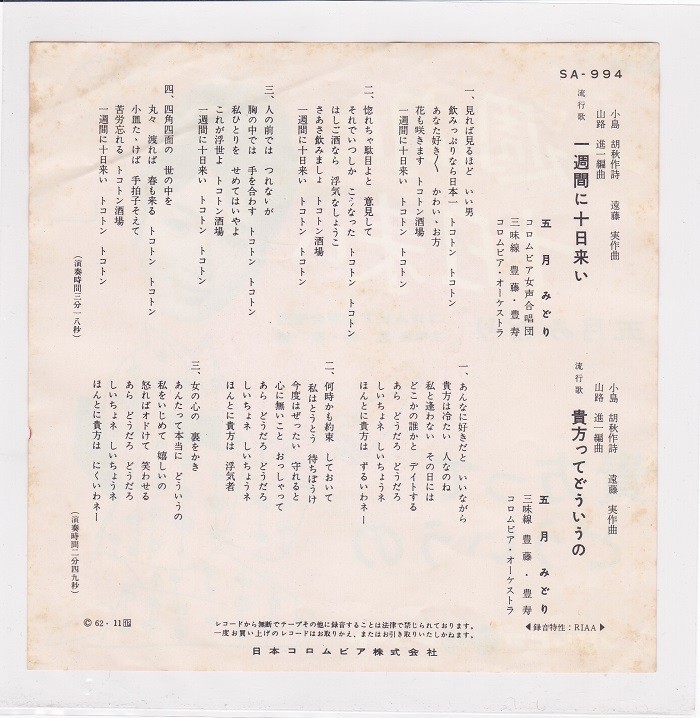 SA-994
流行歌
一週間に十日来い
小島 胡秋作詩
山路 進一編曲
遠藤 実作曲
五月みどり
コロムビア女声合唱団
三味線 豊藤・豊寿
コロムビア・オーケストラ
一、見れば見るほど いい男
飲みっぷりなら日本一 トコトン トコトン
あなた好き〳〵 かわいゝお方
花も咲きます トコトン酒場
一週間に十日来い トコトン トコトン
二、惚れちゃ駄目よと 意見して
それでいつしか こうなった トコトン トコトン
はしご酒なら 浮気なしょうこ
さあさ飲みましょ トコトン酒場
一週間に十日来い トコトン トコトン
三、人の前では つれないが
胸の中では 手を合わす トコトン トコトン
私ひとりを せめてはいやよ
これが浮世よ トコトン酒場
一週間に十日来い トコトン トコトン
四、四角四面の 世の中を
丸く 渡れば 春も来る トコトン トコトン
小皿たゝけば 手拍子そえて
苦労忘れる トコトン酒場
一週間に十日来い トコトン トコトン
（演奏時間三分一八秒）
流行歌
貴方ってどういうの
小島 胡秋作詩
山路 進一編曲
遠藤 実作曲
五月みどり
三味線 豊藤・豊寿
コロムビア・オーケストラ
一、あんなに好きだと いいながら
貴方は冷たい 人なのね
私と逢わない その日には
どこかの誰かと デイトする
あら どうだろ どうだろ
しいちょネ しいちょうネ
ほんとに貴方は ずるいわネー
二、何時かも約束 しておいて
私はとうとう 待ちぼうけ
今度はぜったい 守れると
心に無いこと おっしゃって
あら どうだろ どうだろ
しいちょネ しいちょうネ
ほんとに貴方は 浮気者
三、女の心の 裏をかき
あんたって本当に どういうの
私をいじめて 嬉しいの
怒ればオドけて 笑わせる
あら どうだろ どうだろ
しいちょネ しいちょうネ
ほんとに貴方は にくいわネー
（演奏時間二分四九秒）
◀録音特性：RIAA▶
レコードから無断でテープその他に録音することは法律で禁じられております。
一度お買い上げのレコードはお取りかえ、またはお引き取りいたしかねます。
日本コロムビア株式会社
© 62・11